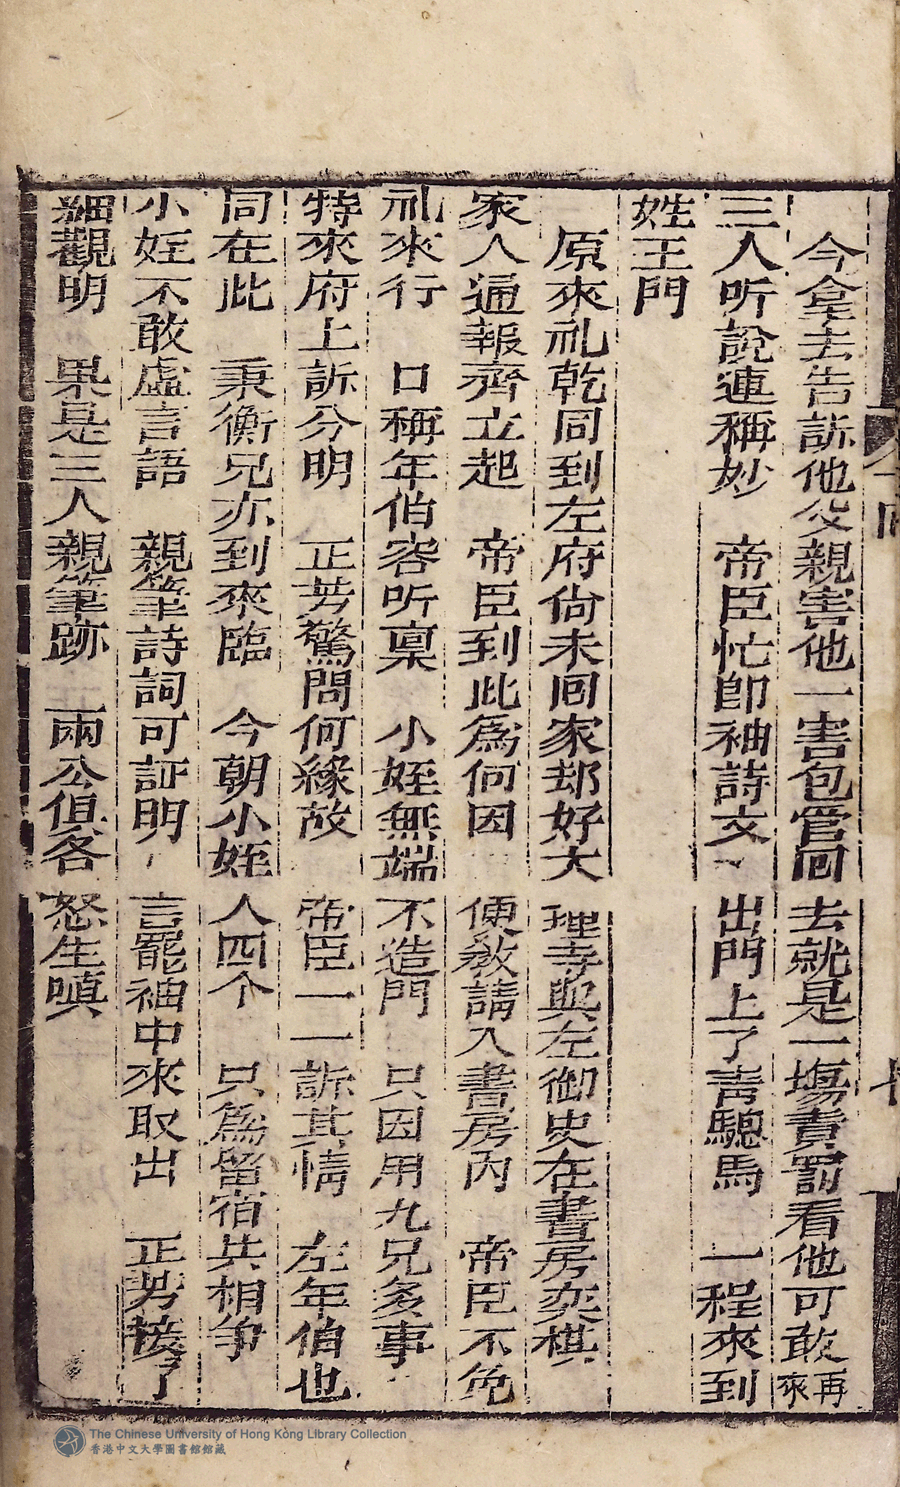 今拿去告訴他父親害他一害包管回去就是一塲責罰看他可敢再來
三人听說連稱妙　帝臣忙即袖詩文　出門上了青驄馬　一程來到
姓王門
原來礼乾同到左府尙未囘家却好大理寺與左御史在書房奕棋
家人通報齊立起　帝臣到此為何因　便敎請入書房內　帝臣不免
礼來行　口稱年伯容听禀　小姪無端不造門　只因用九兄多事
特來府上訴分明　正芳驚問何緣故　帝臣一一訴其情　左年伯也
同在此　秉衡兄亦到來臨　今朝小姪人四个　只為留宿共相爭
小姪不敢虛言語　親筆詩詞可証明　言罷袖中來取出　正芳接了
細觀明　果是三人親筆跡　兩公俱各怒生嗔
The Chinese University of Hong Kong Library Collection
香港中文大學圖書館館藏